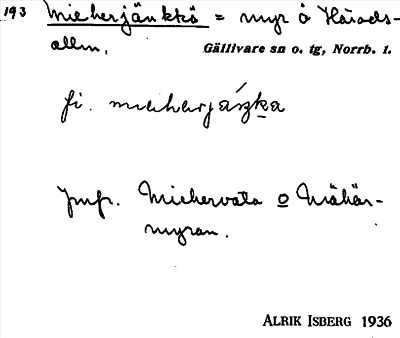 193 Mieherjänkkä = myr å Härads-
allm. Gällivare sn o. tg, Norrb. l.
fi. mieherjaszka
Jmfr. Miehervata o Mähär-
myran.
ALRIK ISBERG 1936